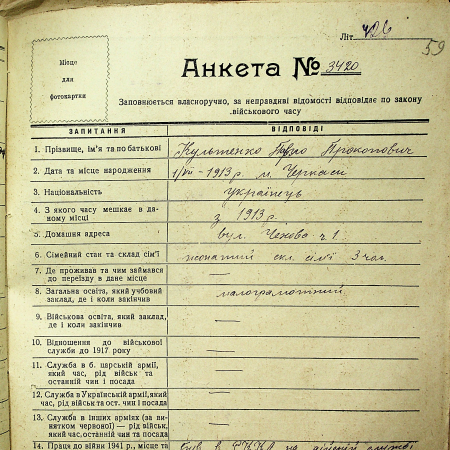 Літ. 426
59
Місце
для
фотокартки
Анкета № 3420
Заповнюється власноручно, за неправдиві відомості відповідає по закону
військового часу
ЗАПИТАННЯ ВІДПОВІДІ
1. Прізвище, ім'я та по батькові Павло Прокопович
2. Дата та місце народження 1/VII - 1913 р. м. Черкаси
3. Національність українець
4. З якого часу мешкає в да-
ному місці з 1913 р.
5. Домашня адреса вул. Чехова ч 1
6. Сімейний стан та склад сім'ї жонатий скл. сім'ї 3 чол.
7. Де проживав та чим займався
до переїзду в дане місце —
8. Загальна освіта, який учбовий
заклад, де і коли закінчив малограмотний
9. Військова освіта, який заклад,
де і коли закінчив —
10. Відношення до військової
служби до 1917 року —
11. Служба в б. царській армії,
який час, рід військ та
останній чин і посада —
12. Служба в Українській армії, який
час, рід військ та ост. чин і посада —
13. Служба в інших арміях (за ви-
нятком червоної) — рід військ,
який час, останній чин та посада —
14. Праця до війни 1941 р., місце та був в РККА на